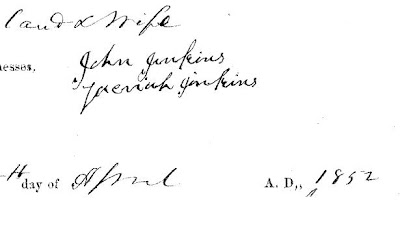 land & Wife
nesses, John Jenkins
Jeremiah Jenkins
th day of April A. D., 1852